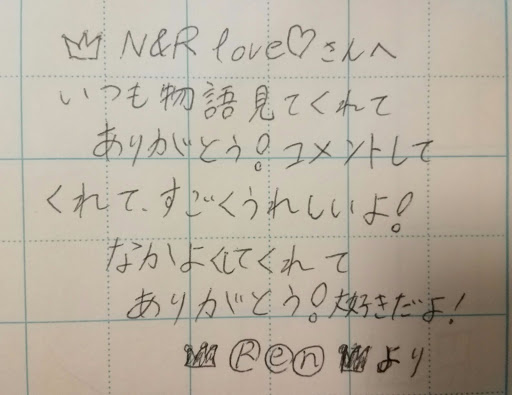 👑 N&R love♡さんへ
いつも物語見てくれて
ありがとう!コメントして
くれて、すごくうれしいよ!
なかよくしてくれて
ありがとう!大好きだよ!
👑 Ren 👑より